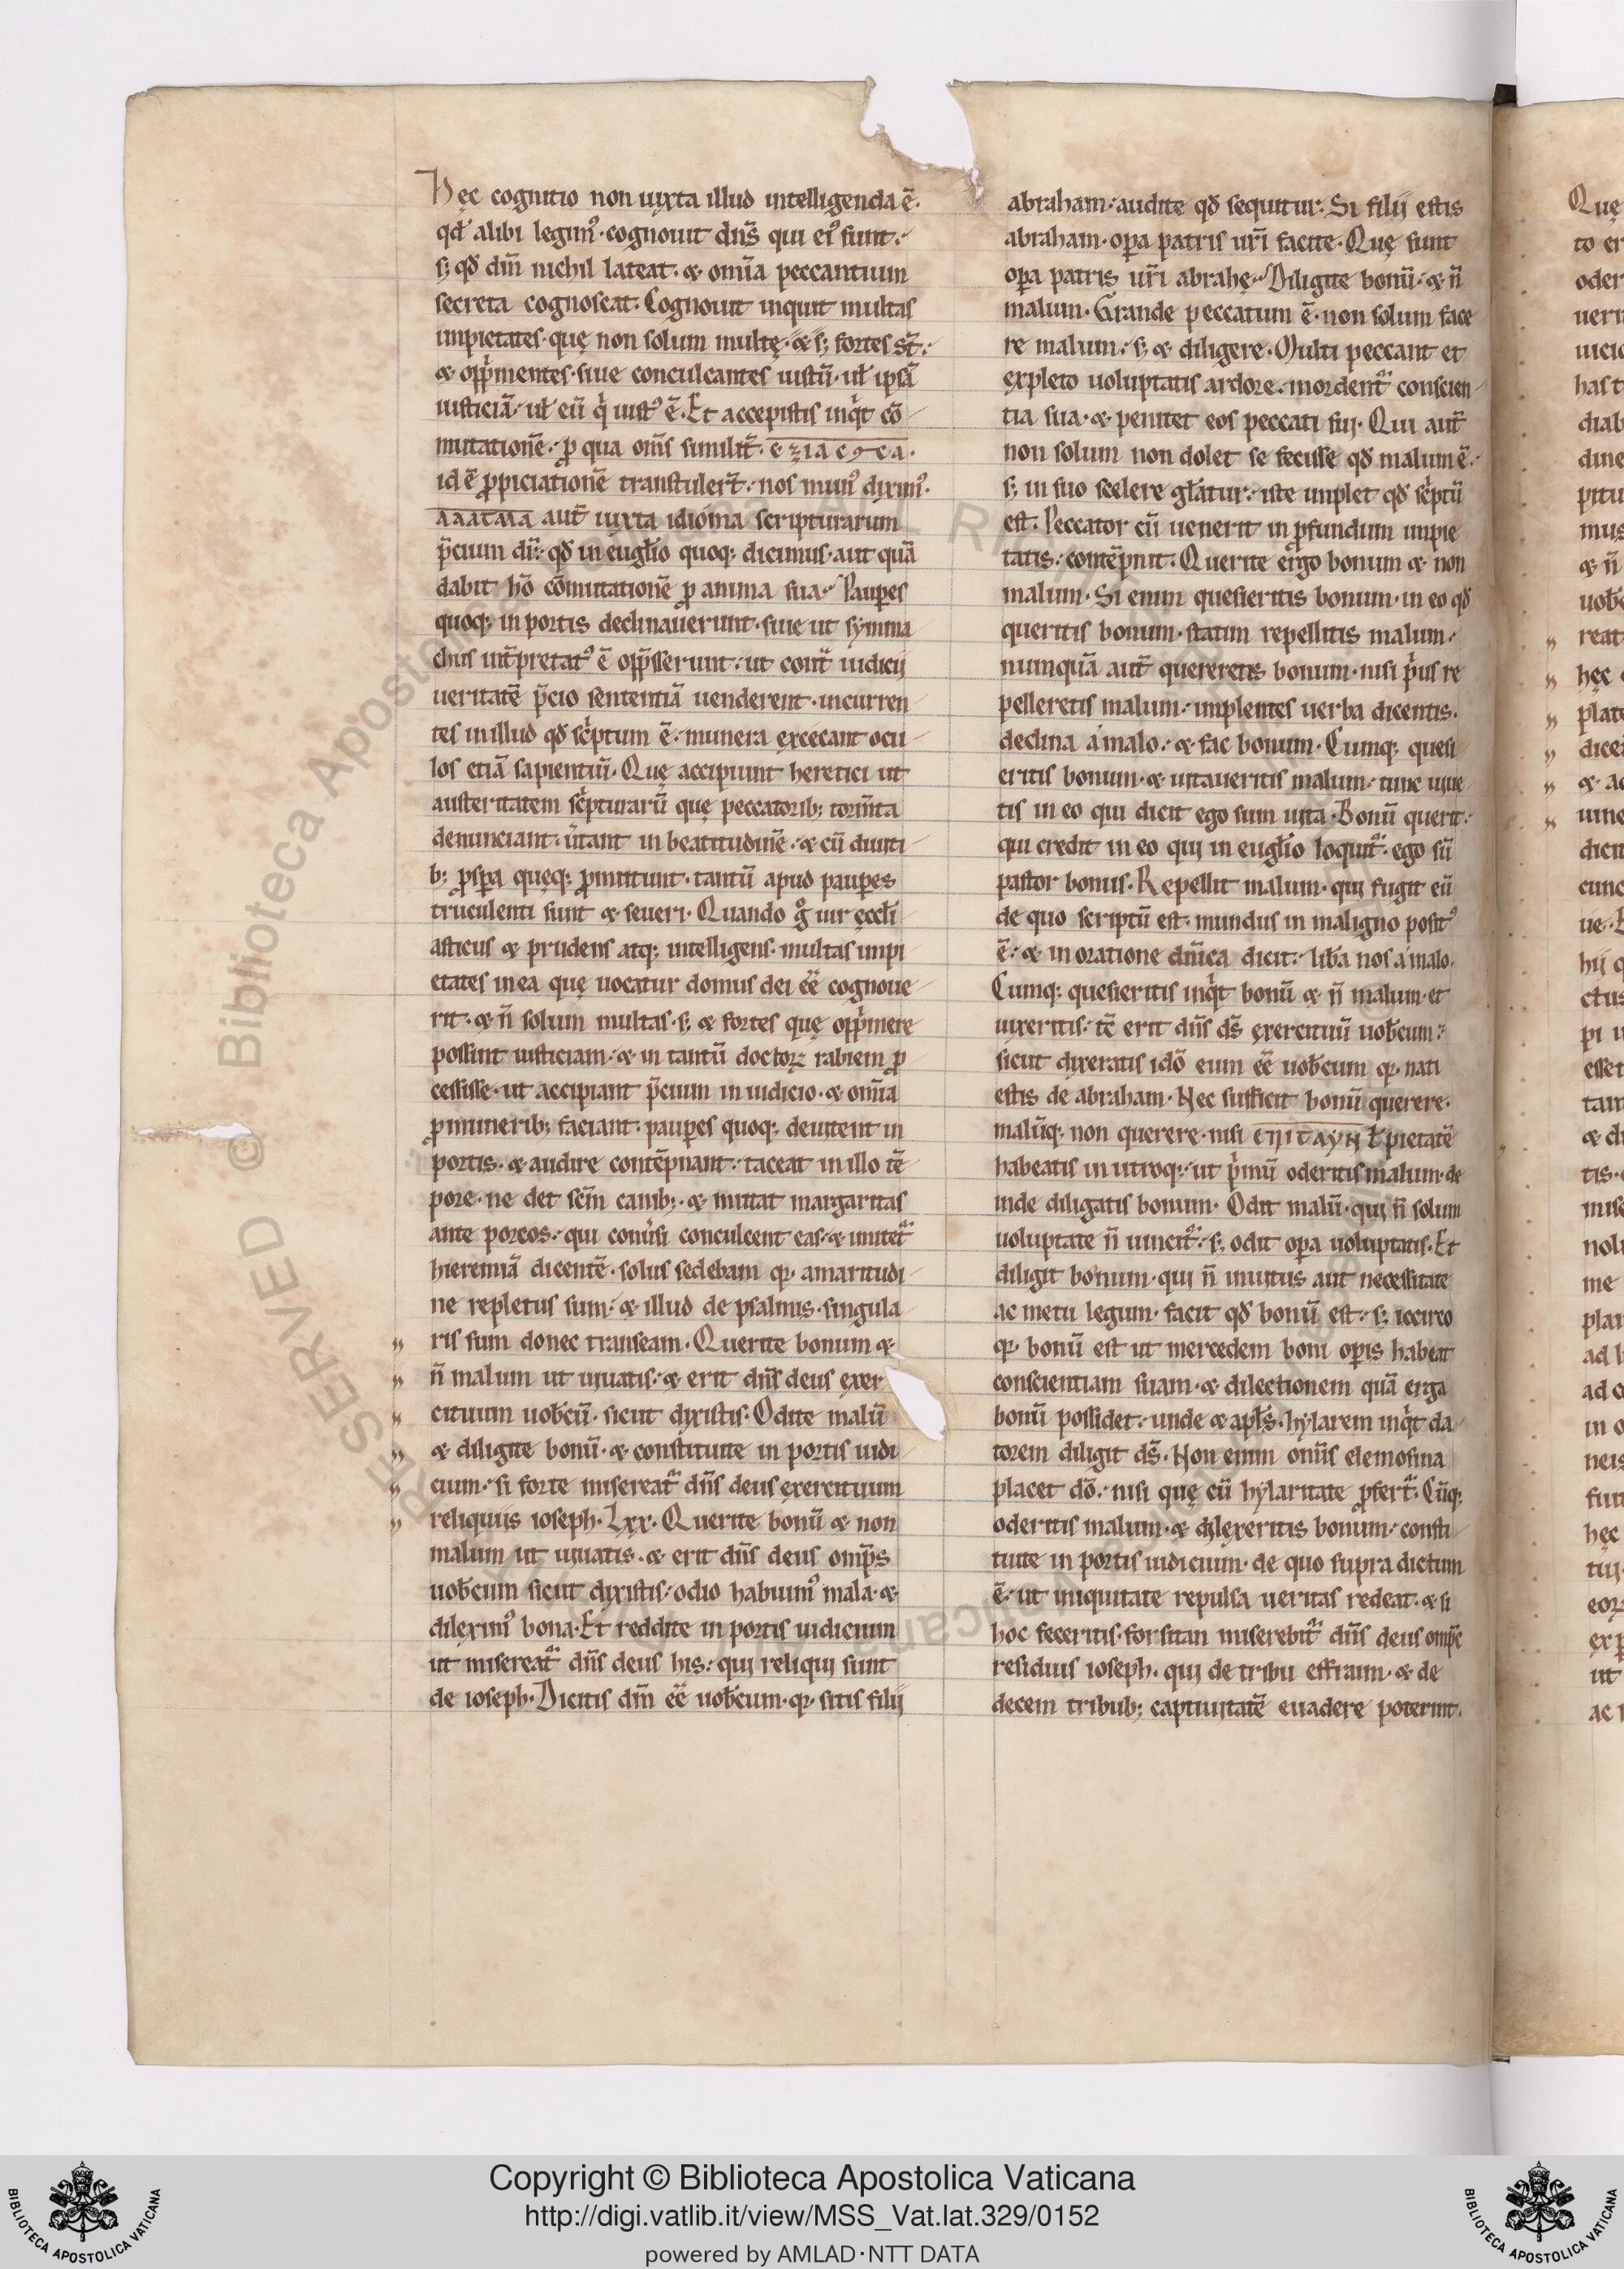 Hęc cognitio non iuxta illud intelligenda ē.
qđ alibi legimꝰ. cognouit dn̄s qui eiꝰ sunt.
s; qđ dm̄ nichil lateat. & om̄a peccantium
secreta cognoscat. Cognouit inquit multas
impietates. quę non solum multę. & s; fortes st̄.
& opp̄mentes. siue conculcantes iustū. ul ipsā
iusticiā. ul eū q̓ iustꝰ ē. Et accepistis inq̓t cō
mutationē. ꝓ qua om̄s similit̄. εξιλασμα.
id ē ꝓpiciationē transtuler̄t. nos munꝰ diximꝰ.
λλαγμα aut̄ iuxta idioma scripturarum
p̄cium dr̄. qđ in euglīo quoq; dicimus. aut quā
dabit hō cōmutationē ꝓ anima sua. Pauꝑes
quoq; in portis declinauerunt. siue ut symma
chus int̄pretatꝰ ē opp̄sserunt. ut cont̄ iudicij
ueritatē p̄cio sententiā uenderent. incurren
tes in illud qđ sc̓ptum ē. munera excęcant ocu
los etiā sapientiū. Quę accipiunt heretici ut
austeritatem sc̓pturarū quę peccatorib; torm̄ta
denunciant. ūtant in beatitudinē. & cū diuiti
b; ꝓsꝑa quęq; ꝓmittunt. tantū apud pauꝑes
truculenti sunt & seueri. Quando g̊ uir ęccl̄i
asticus & prudens atq; intelligens. multas impi
etates in ea quę uocatur domus dei ēē cognoue
rit. & n̄ solum multas. s; & fortes quę opp̓mere
possint iusticiam. & in tantū doctoꝝ rabiem ꝓ
cessisse. ut accipiant p̄cium in iudicio. & om̄ia
ꝓ munerib; faciant. pauꝑes quoq; deuitent in
portis. & audire contēpnant. taceat in illo tē
pore. ne det sc̄m canib;. & mittat margaritas
ante porcos. qui conuˀsi conculcent eas. & imitet᷑
hieremiā dicentē. solus sedebam qꝛ. amaritudi
ne repletus sum. & illud de psalmis. singula
ris sum donec transeam. Querite bonum &
n̄ malum ut uiuatis. & erit dn̄s deus exer
cituum uob̄cū. sicut dixistis. Odite malū
& diligite bonū. & constituite in portis iudi
cium. si forte misereat᷑ dn̄s deus exercituum
reliquiis ioseph. Lxx. Querite bonū & non
malum ut uiuatis. & erit dn̄s deus omp̄s
uob̄cum sicut dixistis. odio habuimꝰ mala. &
dileximꝰ bona. Et reddite in portis iudicium
ut misereat᷑ dn̄s deus his. qui reliqui sunt
de ioseph. Dicitis dm̄ ēē uob̄cum. qꝛ. sitis filij
abraham. audite qđ sequitur. Si filij estis
abraham. oꝑa patris ur̄i facite. Quę sunt
oꝑa patris ur̄i abrahę. Diligite bonū. & n̄
malum. Grande peccatum ē. non solum face
re malum. s; & diligere. Multi peccant et
expleto uoluptatis ardore. mordent᷑ conscien
tia sua. & penitet eos peccati sui. Qui aut̄
non solum non dolet se fecisse qđ malum ē.
s; in suo scelere gl̄atur. iste implet qđ sc̓ptū
est. Peccator cū uenerit in ꝓfundum impie
tatis. contēpnit. Querite ergo bonum & non
malum. Si enim quesieritis bonum. in eo qđ
queritis bonum. statim repellitis malum.
numquā aut̄ quereretis bonum. nisi p̓us re
pelleretis malum. implentes uerba dicentis.
declina a malo. & fac bonum. Cumq; quesi
eritis bonum. & uitaueritis malum. tunc uiue
tis in eo qui dicit ego sum uita. Bonū querit.
qui credit in eo qui in euglīo loquit᷑. ego sū
pastor bonus. Repellit malum. qui fugit eū
de quo scriptū est. mundus in maligno positꝰ
ē. & in oratione dn̄ica dicit. lib̄a nos a malo.
Cumq; quesieritis inq̓t bonū & n̄ malum. et
uixeritis. tē erit dn̄s ds̄ exercituū uob̄cum.
sicut dixeratis idō eum ēē uob̄cum qꝛ. nati
estis de abraham. Nec sufficit bonū querere.
malūq; non querere. nisi επιταγη l̄ pietatē
habeatis in utroq;. ut p̓mū oderitis malum. de
inde diligatis bonum. Odit malū. qui n̄ solum
uoluptate n̄ uincit᷑. s; odit oꝑa uoluptatis. Et
diligit bonum. qui n̄ inuitus aut necessitate
ac metu legum. facit qđ bonū est. s; iccirco
qꝛ. bonū est ut mercedem boni oꝑis habeat
conscientiam suam. & dilectionem quā erga
bonū possidet. unde & apl̄s. hylarem inq̓t da
torem diligit ds̄. Non enim om̄is elemosina
placet dō. nisi quę cū hylaritate ꝓfert᷑. Cūq;
oderitis malum. & dilexeritis bonum. consti
tuite in portis iudicium. de quo supra dictum
ē. ut iniquitate repulsa ueritas redeat. & si
hoc feceritis. forsitan miserebit᷑ dn̄s deus omp̄s
residuis ioseph. qui de tribu effraim. & de
decem tribub; captiuitatē euadere poterint.
Copyright © Biblioteca Apostolica Vaticana
http://digi.vatlib.it/view/MSS_Vat.lat.329/0152
powered by AMLAD·NTT DATA
BIBLIOTECA APOSTOLICA VATICANA
BIBLIOTECA APOSTOLICA VATICANA